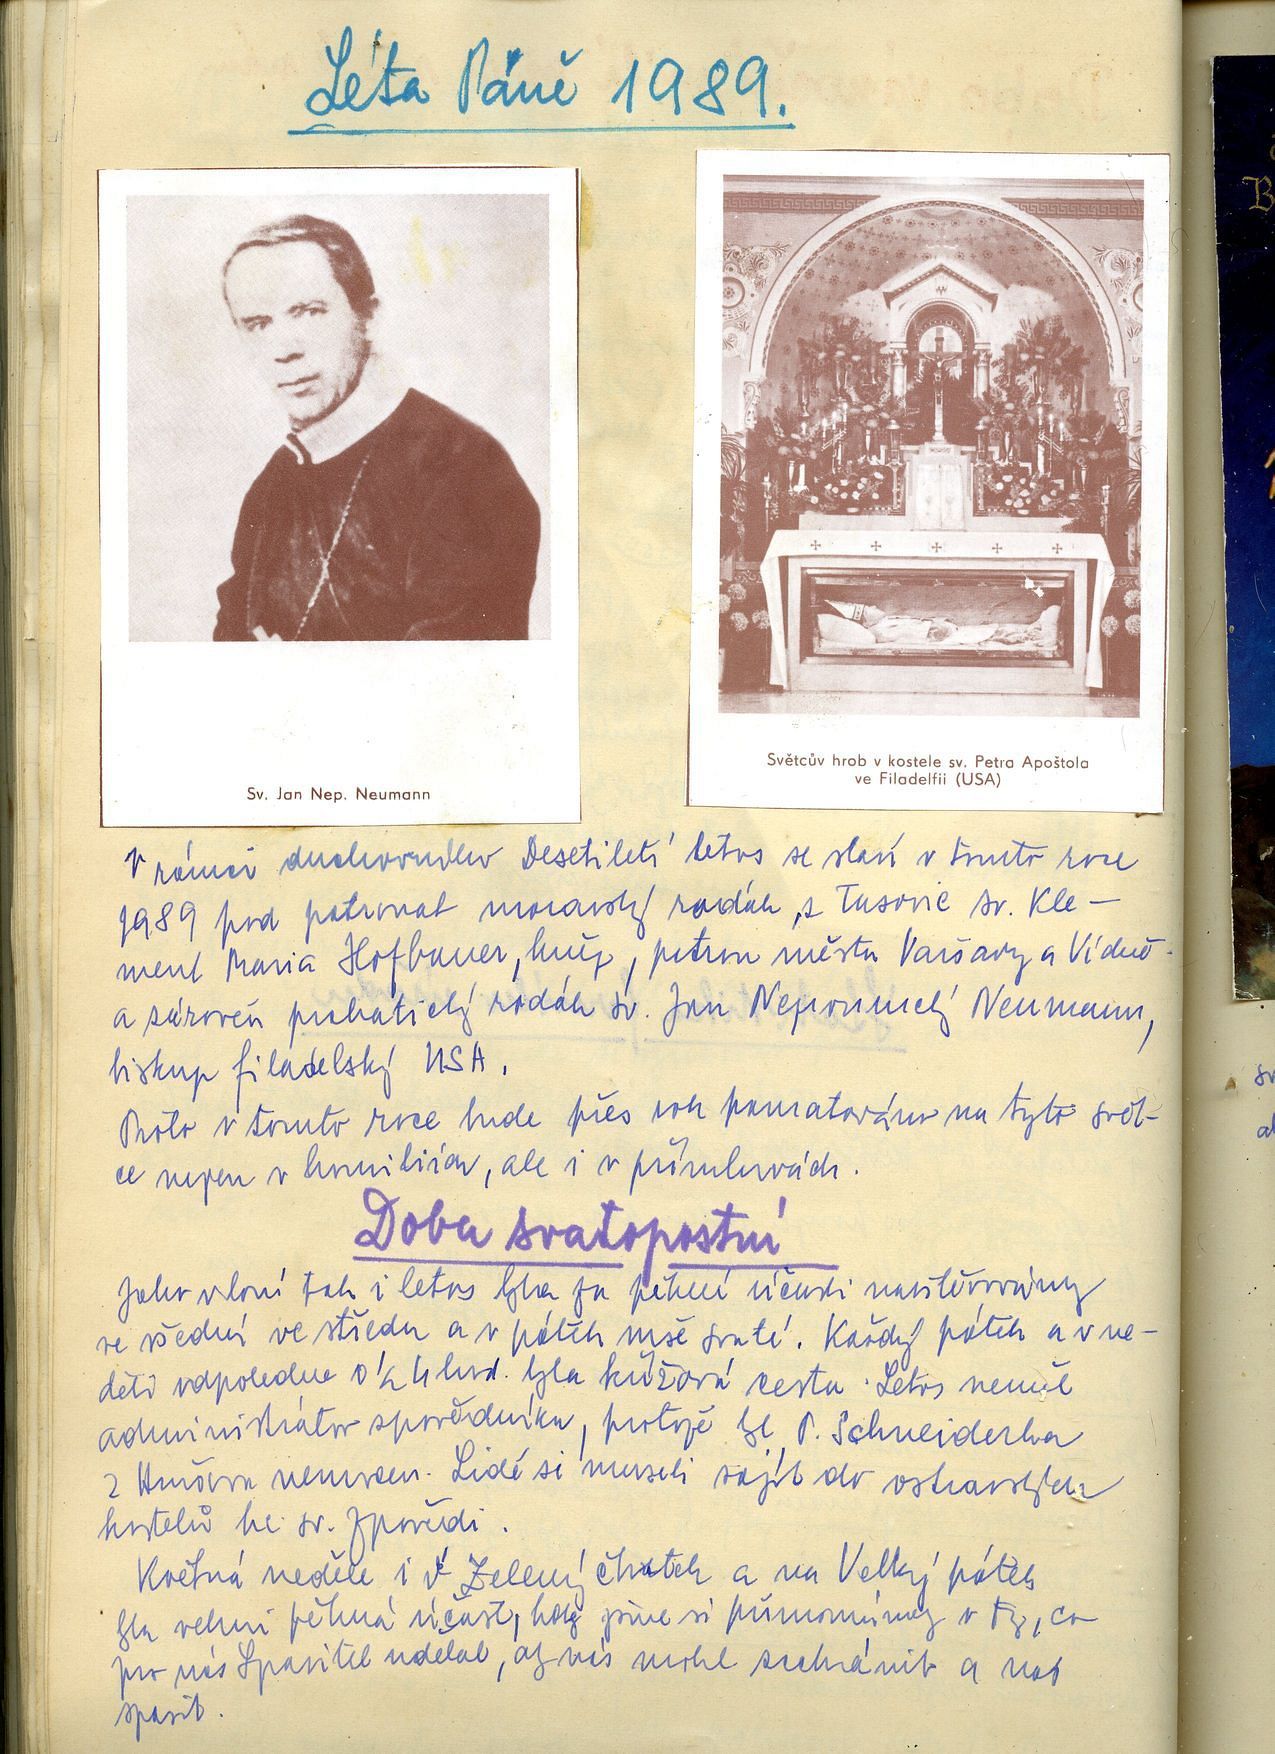 Léta Páně 1989.
Sv. Jan Nep. Neumann
Světcův hrob v kostele sv. Petra Apoštola
ve Filadelfii (USA)
V rámci duchovního Desetiletí letos se slaví v tomto roce
1989 pod patronát moravský rodák z Tasovic sv. Kle-
ment Maria Hofbauer, kněz, patron města Varšavy a Vídně
a zároveň prachatický rodák sv. Jan Nepomucký Neumann,
biskup filadelský USA.
Proto v tomto roce bude přes rok pamatováno na tyto svět-
ce nejen v homiliích, ale i v přímluvách.
Doba svatopostní
Jako vloni tak i letos byla za pěkné účasti navštěvovány
ve všední ve středu a v pátek mše svaté. Každý pátek a v ne-
děli odpoledne o ½ 4 hod. byla křížová cesta. Letos neměl
administrátor zpovědníka, protože byl P. Schneiderka
z Hnojníka nemocen. Lidé si museli zajít do ostravských
kostelů ke sv. zpovědi.
Květná neděle i v Zelený čtvrtek a na Velký pátek
byla velmi pěkná účast, kdy jsme si připomínaly v to, co
pro nás Spasitel udělal, aby nás mohl zachránit a nás
spasit.
B